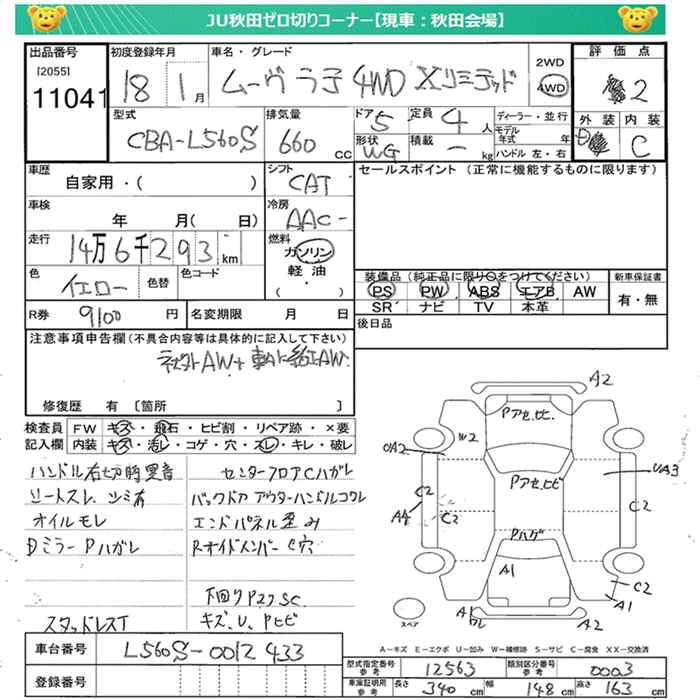 JU秋田ゼロ切りコーナー【現車：秋田会場】
出品番号
[2055]
11041
初度登録年月
18 1月
車名・グレード
ムーヴラテ 4WD Xリミテッド
2WD
4WD
評価点
2
外装 内装
C
型式
CBA-L560S
排気量
660 cc
ドア 5
定員 4人
形状 WG
積載 - kg
ディーラー・並行
モデル年式 年
ハンドル 左・右
車歴
自家用・( )
シフト
CAT
セールスポイント（正常に機能するものに限ります）
車検
年 月( 日)
冷房
AAC
走行
14万6千293km
燃料
ガソリン
軽・油
( )
色
イエロー
色替
色コード
装備品（純正品に限り○をつけてください）
PS PW ABS エアB AW
SR ナビ TV 本革
新車保証書
有・無
R券 9100円
名変期限 月 日
後日品
注意事項申告欄（不具合内容等は具体的に記入して下さい）
修復歴 有 〔箇所 〕
検査員記入欄
FW キズ・飛石・ヒビ割・リペア跡・×要
内装 キズ・汚レ・コゲ・穴・スレ・キレ・破レ
ハンドル右切時異音
シートスレ、シミ有
オイルモレ
Dミラー Pハガレ
スタッドレスT
センターフロアCハガレ
バックドアアウターハンドルコワレ
エンドパネル歪み
RサイドメンバーC穴
下回りPスクSC
キズ、U、Pヒビ
A2
Pアセ、ヒビ
ツ2
UA2
UA3
Pアセ、ヒビ
C2
C2
C2
A4
Pハゲ
A1
C2
A1
A1
ワレ
A2
スペア
A－キズ E－エクボ U－凹み W－補修跡 S－サビ C－腐食 XX－交換済
車台番号
L560S-0012433
登録番号
型式指定番号 参考
12563
類別区分番号 参考
0003
車庫証明用 参考
長さ 340cm
幅 148cm
高さ 163cm